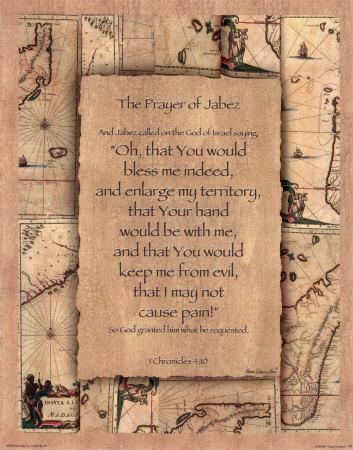 The Prayer of Jabez
And Jabez called on the God of Israel saying,
"Oh, that You would
bless me indeed,
and enlarge my territory,
that Your hand
would be with me,
and that You would
keep me from evil,
that I may not
cause pain!"
So God granted him what he requested.
1 Chronicles 4:10
INSVLA S.L
MADAG